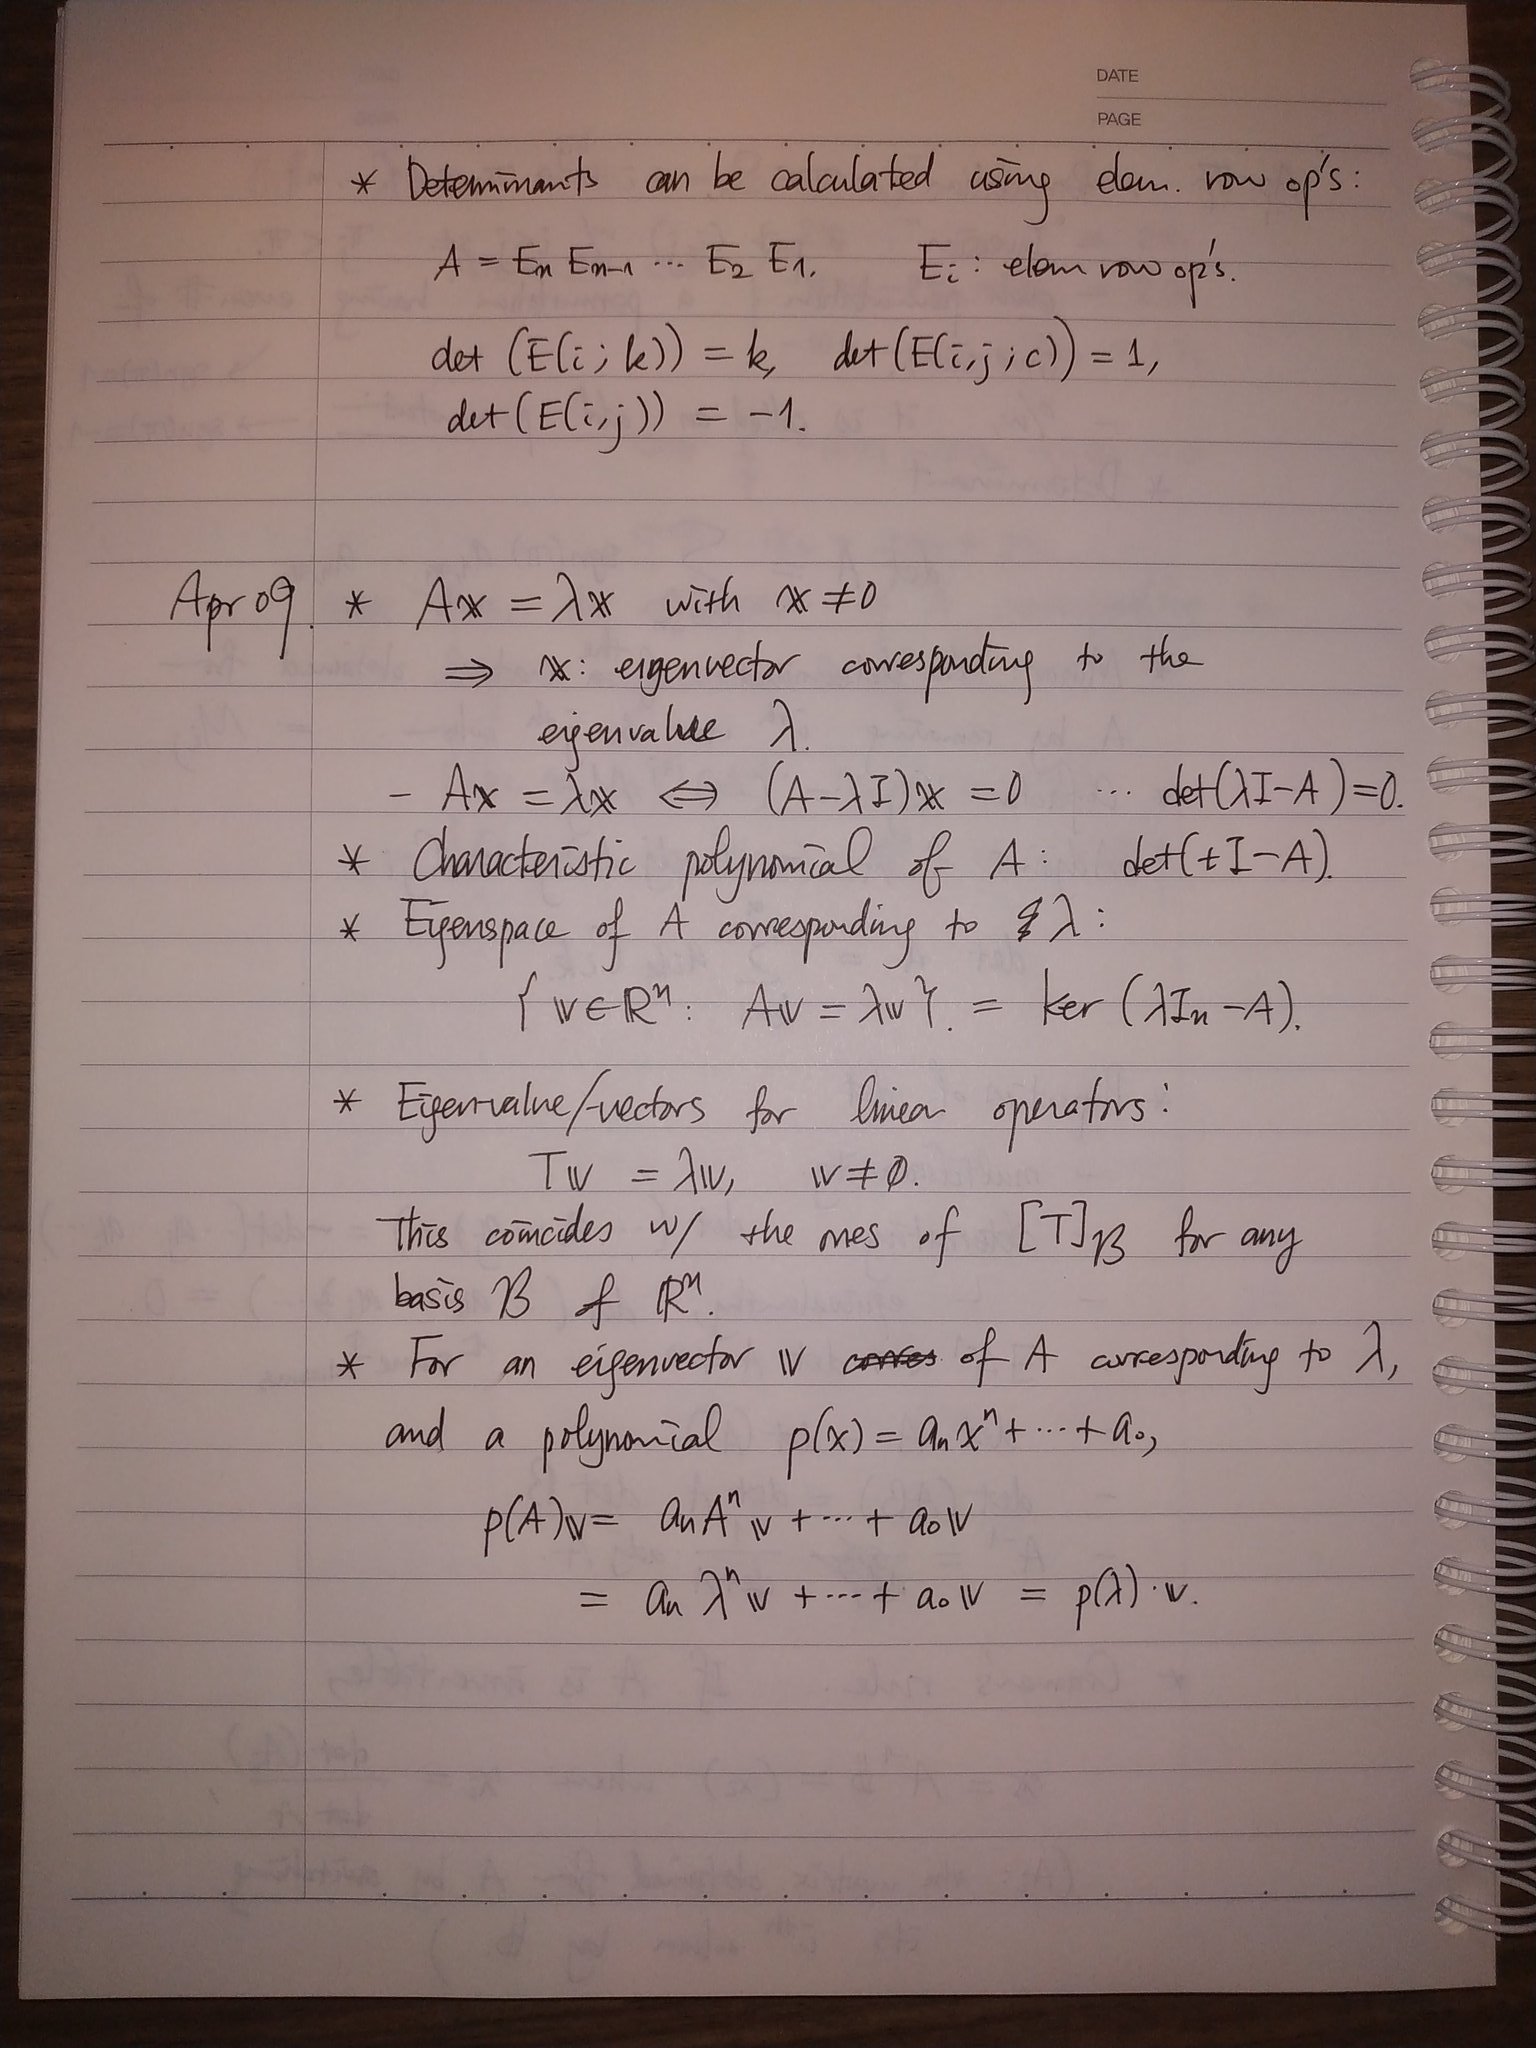 DATE
PAGE
* Determinants can be calculated using elem. row op's:
A = Eₙ Eₙ₋₁ ... E₂ E₁. Eᵢ : elem row op's.
det (E(i ; k)) = k, det (E(i, j ; c)) = 1,
det (E(i, j)) = -1.
Apr 09. * A𝕩 = λ𝕩 with 𝕩 ≠ 0
⇒ 𝕩 : eigenvector corresponding to the
eigenvalue λ.
- A𝕩 = λ𝕩 ⇔ (A-λI)𝕩 = 0 ... det(λI-A)=0.
* Characteristic polynomical of A : det(tI-A).
* Eigenspace of A corresponding to λ :
{ 𝕧 ∈ ℝⁿ : A𝕧 = λ𝕧 }. = ker (λIₙ - A).
* Eigen-value/-vectors for linear operators :
T𝕧 = λ𝕧, 𝕧 ≠ 0.
This coincides w/ the ones of [T]ℬ for any
basis ℬ of ℝⁿ.
* For an eigenvector 𝕧 corres of A corresponding to λ,
and a polynomial p(x) = aₙxⁿ + ... + a₀,
p(A)𝕧 = aₙAⁿ𝕧 + ... + a₀𝕧
= aₙλⁿ𝕧 + ... + a₀𝕧 = p(λ)·𝕧.